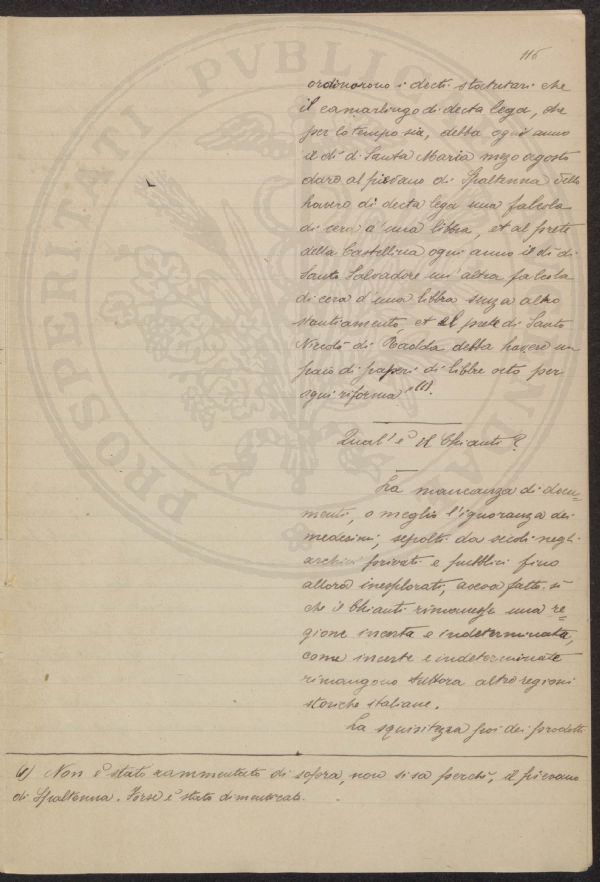 116
ordinorono i decti statutari che
il camarlingo di decta lega, che
per lo tempo sia, debba ogni anno
il dì di Santa Maria mezo agosto
dare al piovano di Spaltenna
havere di decta lega una falcola
di cera d'una libbra, et al prete
della Castellina ogni anno il dì di
Santo Salvadore un' altra falcola
di cera d'una libbra senza altro
stantiamento, et al prete di Santo
Niccolò di Radda debba havere un
paio di paperi di libbre octo per
ogni riforma" (1).
Qual'è il Chianti?
La mancanza di docu=
menti, o meglio l'ignoranza dei
medesimi, sepolti da secoli negli
archivi privati e pubblici fino
allora inesplorati, aveva fatto sì
che il Chianti rimanesse una re=
gione incerta e indeterminata,
come incerte e indeterminate
rimangono tuttora altre regioni
storiche italiane.
La squisitezza poi dei prodotti
(1) Non è stato rammentato di sopra, non si sa perchè, il piovano
di Spaltenna. Forse è stato dimenticato.
PROSPERITATI PVBLICAE